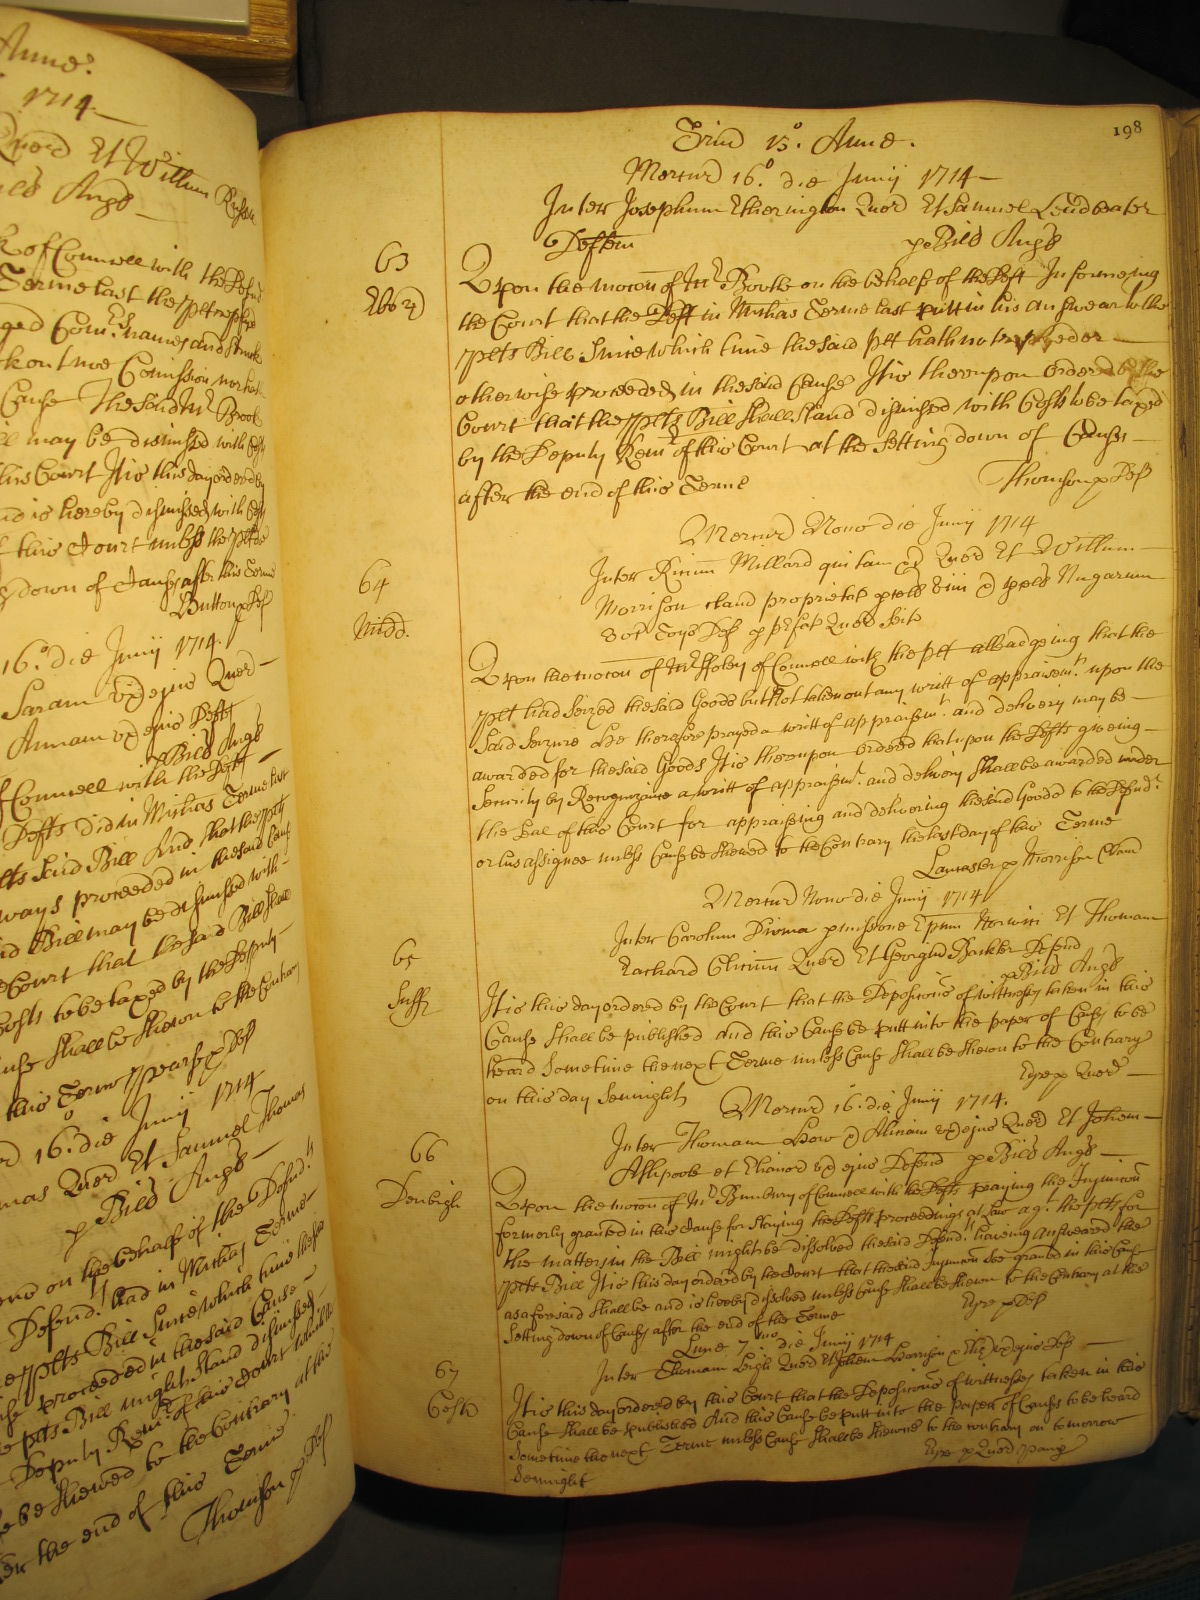 Anne.
1714
Quer Et Willum Russell
Bild Angò
k of Councell with the Defend
Terme last the pltt replyed
ged Com.rs names and struck
k out noe Comission nor hath
Cause The said Mr Brook
ill may be dismissed with Costs
this Court It is this day ordered by
nd is hereby dismissed with Costs
f this Court unless the pltt
down of Causes after this Terme
Button p Def
16.o die Junij 1714.
Saram ux ejus Quer
Annam ux ejus Defts
Bild Angò
f Councell with the Deft
Defts did in Michas Terme last
lts said Bill And that the pltts
ways proceeded in the said Cause
id Bill may be dismissed with
Court that the said Bill shall
Costs to be taxed by the Deputy
use shall be shewn to the Contrary
this Terme Spearse p Def
16.o die Junij 1714
mas Quer Et Samuel Thomas
p Bild Angò
on the behalf of the Defend.t
Defend.t had in Michas Terme
pltts Bill Since which time the said
proceeded in the said Cause
pltts Bill might stand dismissed
Deputy Rem.r of this Court
be shewed to the Contrary at the
the end of this Terme
Thomson p Def
198
Trin 13.o Anne.
Mercur 16.o die Junij 1714
Inter Josephum Etherington Quer Et Samuel Leadbeater
Deftem p Bild Angò
63
Ebor
Upon the mocon of Mr. Brooke on the behalf of the Deft Informeing
the Court that the Deft in Michas Terme last putt in his answear to the
pltts Bill Since which time the said pltt hath not replyed or
otherwise proceeded in the said Cause It is thereupon Ordered by the
Court that the pltts Bill shall stand dismissed with Costs to be taxed
by the Deputy Rem.r of this Court at the Setting down of Causes
after the end of this Terme
Thomson p Def
Mercur Nono die Junij 1714
64
Midd.
Inter Ricum Millard qui tam &c Quer Et Willum
Morrison clam proprietat &c
Toys Def p prefat Quer seit
Upon the mocon of Mr. ffoley of Councell with the pltt alleadgeing that the
pltt had Seized the said Goods but not taken out any writt of appraisem.t upon the
said Seizure He therefore prayed a writt of appraisem.t and delivery may be
awarded for the said Goods It is thereupon ordered that upon the Defts giveing
Security by Recognizance a writt of appraisem.t and delivery shall be awarded under
the Seal of this Court for appraiseing and delivering the said Goods to the Defend.t
or his assignee unless Cause be shewed to the Contrary the last day of this Terme
Lancaster p Morrison Clam
Mercur Nono die Junij 1714
65
Suff
Inter Carolum Epum Norwici Et Thomam
Tachard Clicum Quer Et Georgiu Bankler Defend
p Bild Angò
It is this day ordered by the Court that the Deposicons of wittnesses taken in this
Cause shall be published And this Cause be putt into the paper of Causes to be
heard Sometime the next Terme unless Cause shall be shewn to the Contrary
on this day Sennight
Eyre p Quer
Mercur 16.o die Junij 1714.
66
Denbigh
Inter Thomam Low & Miriam ux ejus Quer Et Johem
Ashpoole et Elianor ux ejus Defend p Bild Angò
Upon the mocon of Mr. Bunbury of Councell with the Defts praying the Injuncon
formerly granted in this Cause for staying the Defts proceedings at Law ag.t the pltts for
the matters in the Bill might be dissolved the said Defend.t haveing answeared the
pltts Bill It is this day ordered by the Court that the said Injuncon soe granted in this Cause
as aforesaid shall be and is hereby dissolved unless Cause shall be shewn to the Contrary at the
Setting down of Causes after the end of the Terme
Eyre p Def
Lune 7mo die Junij 1714
67
Cestr
Inter Thomam Leigh Quer Et Johem Harrison & Eliz ux ejus Def
It is this day ordered by this Court that the Deposicons of wittnesses taken in this
Cause shall be published And this Cause be putt into the paper of Causes to be heard
Sometime the next Terme unless Cause shall be shewne to the contrary on to morrow
Sennight
Eyre p Quer